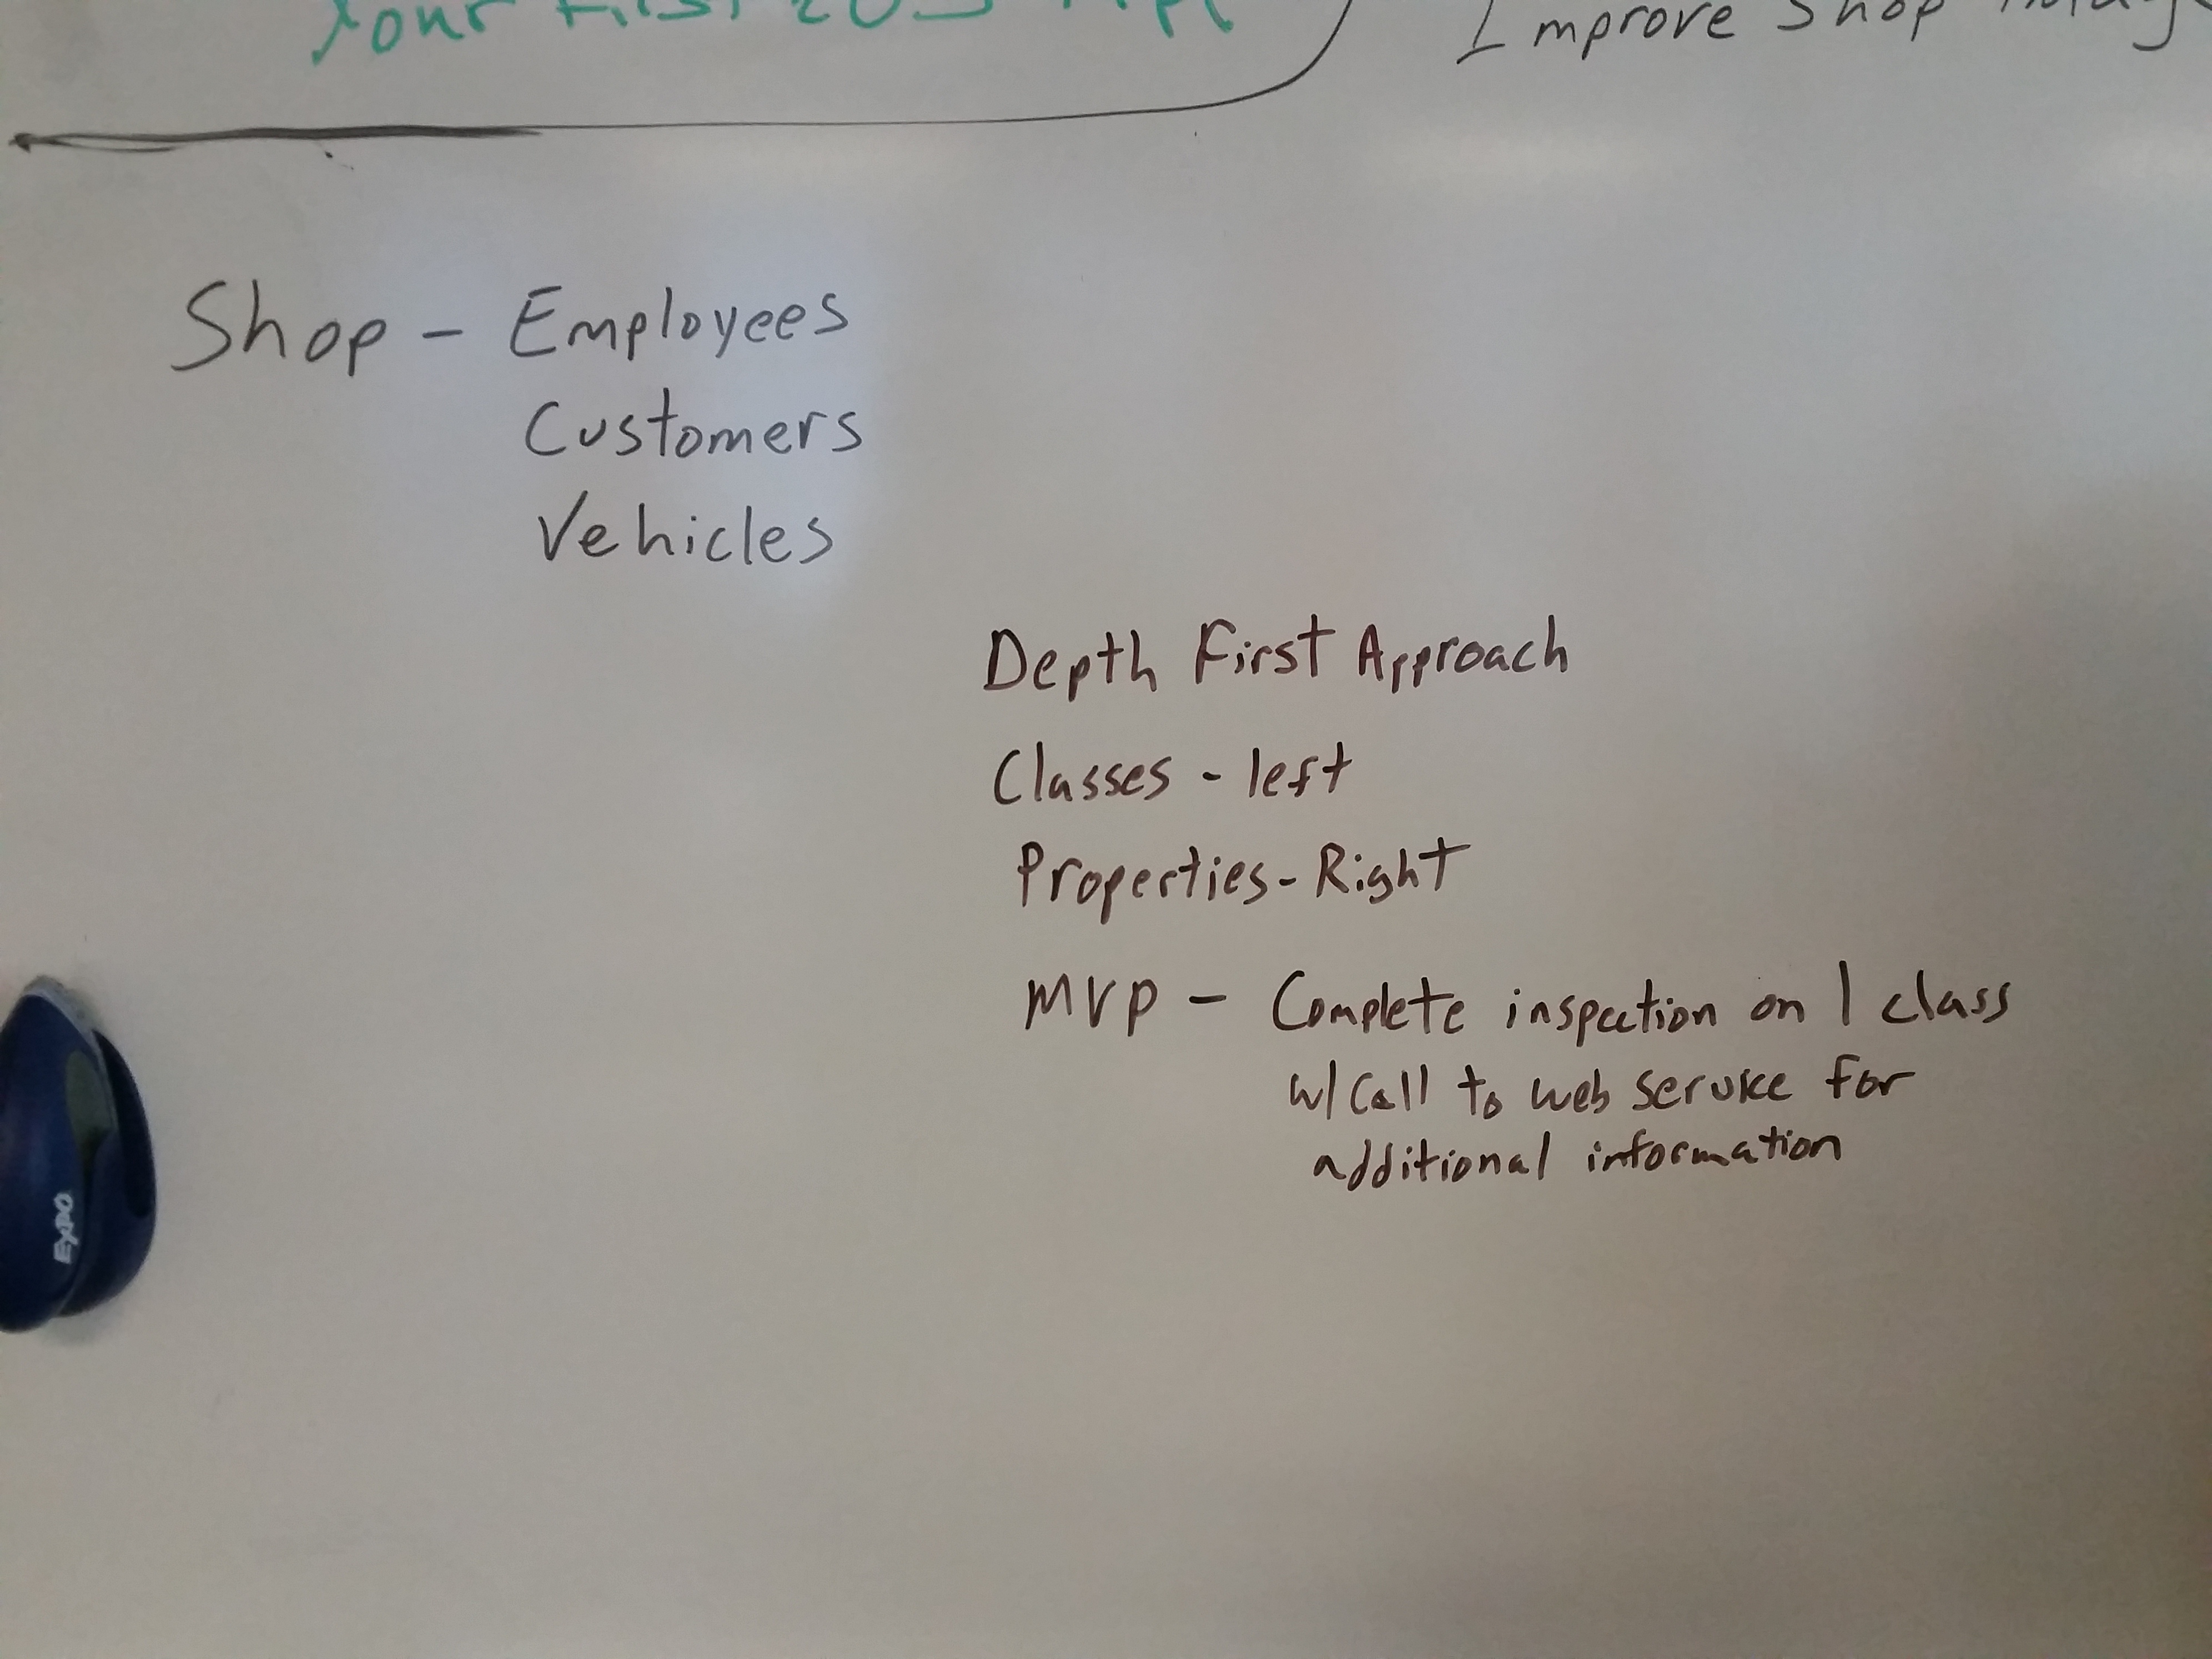 Your First iOS App
Improve Shop
Shop - Employees
Customers
Vehicles
Depth First Approach
Classes - left
Properties - Right
MVP - Complete inspection on 1 class
w/ call to web service for
additional information
EXPO